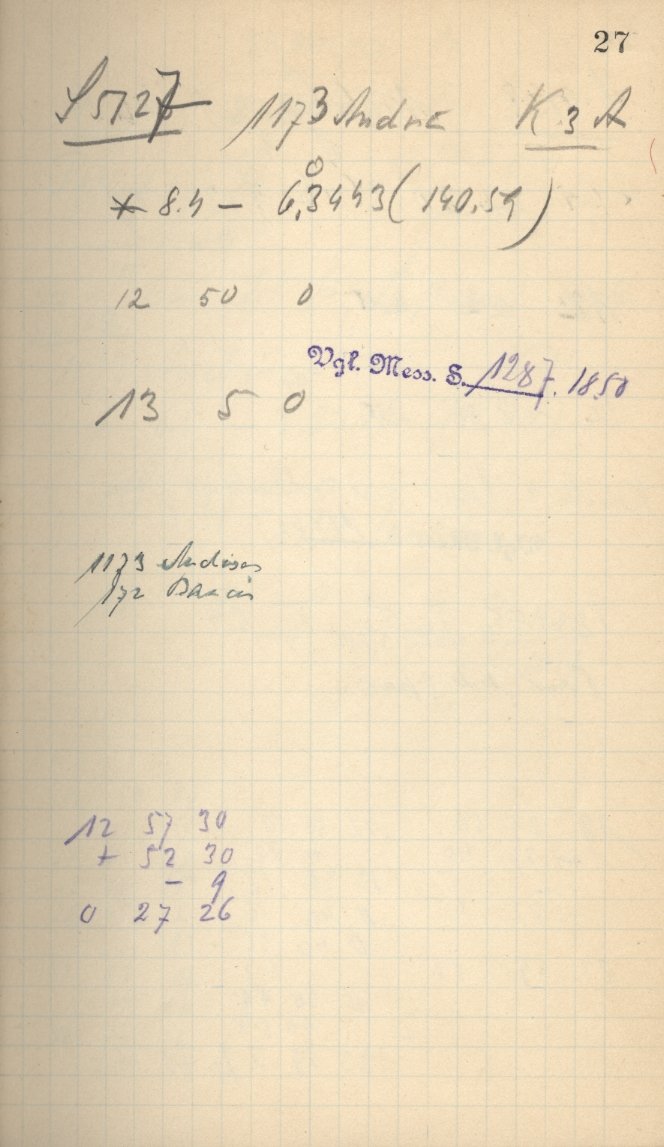 27
S 5727 1173 K 3 A
* 8.4 – 6,3443 (140.59)
0
12 50 0
Vgl. Mess. S. 1287. 18.50
13 5 0
1173
172 Baucis
12 57 30
+ 52 30
– 9
0 27 26